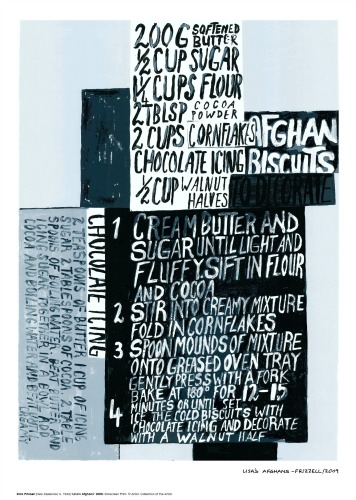 200G SOFTENED BUTTER
½ CUP SUGAR
1¼ CUPS FLOUR
2 TBLSP COCOA POWDER
2 CUPS CORNFLAKES
CHOCOLATE ICING
½ CUP WALNUT HALVES
TO DECORATE
AFGHAN
BISCUITS
1 CREAM BUTTER AND
SUGAR UNTIL LIGHT AND
FLUFFY. SIFT IN FLOUR
AND COCOA
2 STIR INTO CREAMY MIXTURE
FOLD IN CORNFLAKES
3 SPOON MOUNDS OF MIXTURE
ONTO GREASED OVEN TRAY
GENTLY PRESS WITH A FORK
BAKE AT 180° FOR 12-15
MINUTES OR UNTIL SET
4 ICE THE COLD BISCUITS WITH
CHOCOLATE ICING AND DECORATE
WITH A WALNUT HALF
CHOCOLATE ICING
2 TEASPOONS OF BUTTER 1 CUP OF ICING
SUGAR 2 TABLESPOONS OF COCOA 2 TABLE
SPOONS OF BOILING WATER
COCOA AND BOILING WATER
LISA'S AFGHANS - FRIZZELL/2009